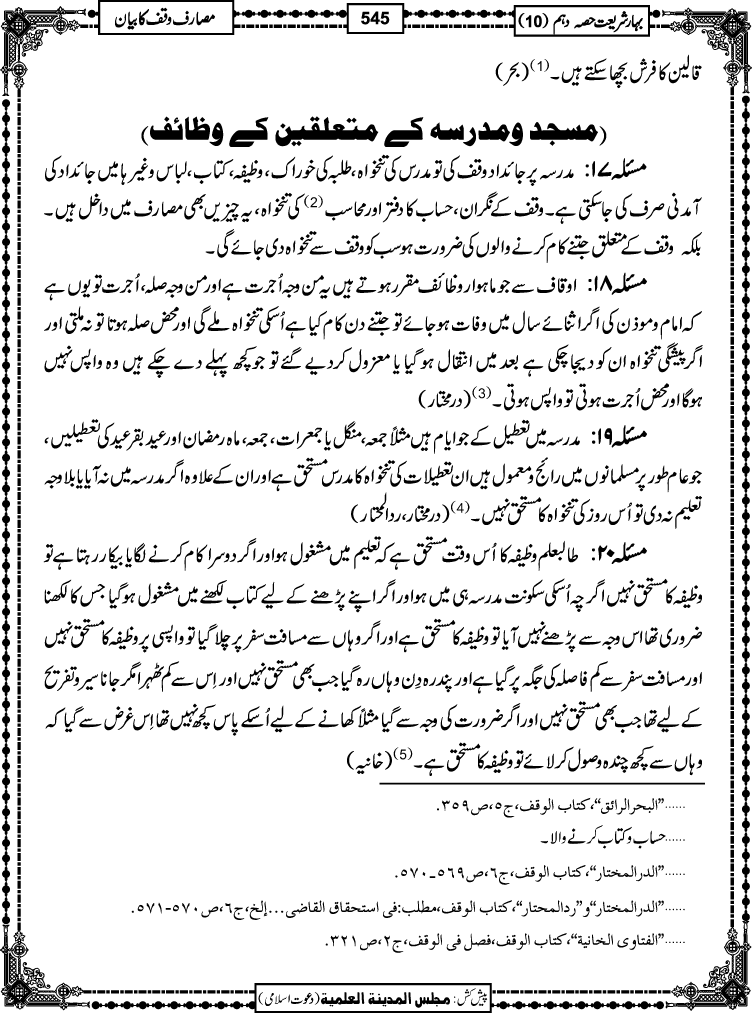 بہارِ شریعت حصہ دہم (10)
545
مصارفِ وقف کا بیان
قالین کا فرش بچھا سکتے ہیں۔(1) (بحر)
(مسجد و مدرسہ کے متعلقین کے وظائف)
مسئلہ ۱۷: مدرسہ پر جائداد وقف کی تو مدرس کی تنخواہ، طلبہ کی خوراک، وظیفہ، کتاب، لباس وغیرہا میں جائداد کی
آمدنی صرف کی جاسکتی ہے۔ وقف کے نگران، حساب کا دفتر اور محاسب(2) کی تنخواہ، یہ چیزیں بھی مصارف میں داخل ہیں۔
بلکہ وقف کے متعلق جتنے کام کرنے والوں کی ضرورت ہو سب کو وقف سے تنخواہ دی جائے گی۔
مسئلہ ۱۸: اوقاف سے جو ماہوار وظائف مقرر ہوتے ہیں یہ من وجہ اُجرت ہے اور من وجہ صلہ، اُجرت تو یوں ہے
کہ امام و موذن کی اگر اثنائے سال میں وفات ہو جائے تو جتنے دن کام کیا ہے اُسکی تنخواہ ملے گی اور محض صلہ ہوتا تو نہ ملتی اور
اگر پیشگی تنخواہ ان کو دیجا چکی ہے بعد میں انتقال ہو گیا یا معزول کر دیے گئے تو جو کچھ پہلے دے چکے ہیں وہ واپس نہیں
ہوگا اور محض اُجرت ہوتی تو واپس ہوتی۔(3) (درمختار)
مسئلہ ۱۹: مدرسہ میں تعطیل کے جو ایام ہیں مثلاً جمعہ، منگل یا جمعرات، جمعہ، ماہ رمضان اور عید بقر عید کی تعطیلیں،
جو عام طور پر مسلمانوں میں رائج و معمول ہیں ان تعطیلات کی تنخواہ کا مدرس مستحق ہے اور ان کے علاوہ اگر مدرسہ میں نہ آیا یا بلا وجہ
تعلیم نہ دی تو اُس روز کی تنخواہ کا مستحق نہیں۔(4) (درمختار، ردالمحتار)
مسئلہ ۲۰: طالبعلم وظیفہ کا اُس وقت مستحق ہے کہ تعلیم میں مشغول ہو اور اگر دوسرا کام کرنے لگا یا بیکار رہتا ہے تو
وظیفہ کا مستحق نہیں اگرچہ اُسکی سکونت مدرسہ ہی میں ہو اور اگر اپنے پڑھنے کے لیے کتاب لکھنے میں مشغول ہو گیا جس کا لکھنا
ضروری تھا اس وجہ سے پڑھنے نہیں آیا تو وظیفہ کا مستحق ہے اور اگر وہاں سے مسافت سفر پر چلا گیا تو واپسی پر وظیفہ کا مستحق نہیں
اور مسافت سفر سے کم فاصلہ کی جگہ پر گیا ہے اور پندرہ دِن وہاں رہ گیا جب بھی مستحق نہیں اور اِس سے کم ٹھہرا مگر جانا سیر و تفریح
کے لیے تھا جب بھی مستحق نہیں اور اگر ضرورت کی وجہ سے گیا مثلاً کھانے کے لیے اُسکے پاس کچھ نہیں تھا اِس غرض سے گیا کہ
وہاں سے کچھ چندہ وصول کر لائے تو وظیفہ کا مستحق ہے۔(5) (خانیہ)
......”البحرالرائق“، کتاب الوقف، ج۵، ص۳۵۹.
......حساب و کتاب کرنے والا۔
......”الدرالمختار“، کتاب الوقف، ج۶، ص۵۶۹۔۵۷۰.
......”الدرالمختار“ و”ردالمحتار“، کتاب الوقف، مطلب: فی استحقاق القاضی...إلخ، ج۶، ص۵۷۰-۵۷۱.
......”الفتاوی الخانیۃ“، کتاب الوقف، فصل فی الوقف، ج۲، ص۳۲۱.
پیش کش: مجلس المدینۃ العلمیۃ (دعوت اسلامی)